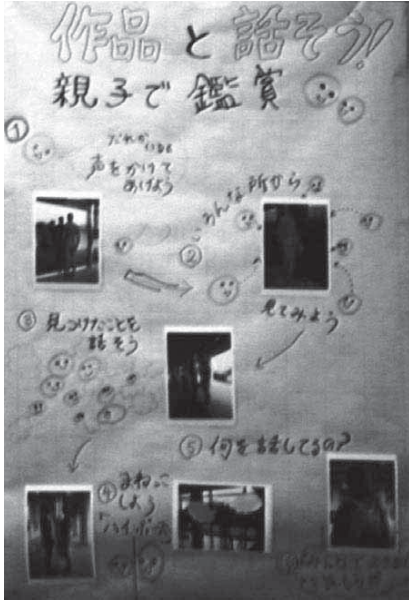 作品と話そう!
親子で鑑賞
①
だれかいるよ
声をかけて
あげよう
②
いろんな所から
見てみよう
③ 見つけたことを
話そう
④ まねっこ
しよう
「ハイポーズ」
⑤ 何を話してるの?